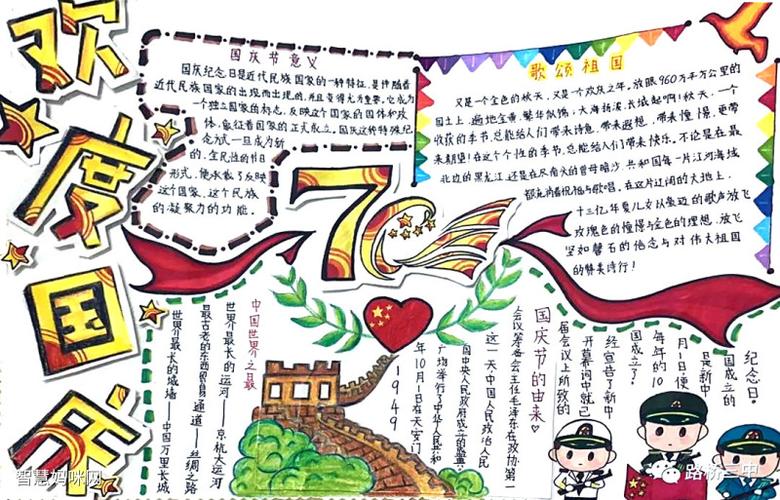 欢度国庆
国庆节意义
国庆纪念日是近代民族国家的一种特征,是伴随着
近代民族国家的出现而出现的,并且变得尤为重要。它成为
一个独立国家的标志,反映这个国家的国体和政
体,象征着国家的正式成立。国庆这种特殊纪
念方式一旦成为新
的、全民性的节日
形式,便承载了反映
这个国家、这个民族
的凝聚力的功能。
歌颂祖国
又是一个金色的秋天,又是一个欢欣之年。放眼960万平方公里的
国土上,遍地金黄,繁华似锦,大海扬波,长城起啊!秋天,一个
收获的季节,总能给人们带来诗意,带来遐想,带来憧憬,更带
来期望!在这个个性的季节,总能给人们带来快乐。不论是在最
北边的黑龙江,还是在尽南头的曾母暗沙,共和国每一片江河海域
都充满着祝福与歌唱。在这片辽阔的大地上,
十三亿华夏儿女以豪迈的歌声放飞
玫瑰色的憧憬与金色的理想,放飞
坚如磐石的信念与对伟大祖国
的赞美诗行!
70
中国世界之最
世界最长的运河——京杭大运河
最古老的东西贸易通道——丝绸之路
世界最长的城墙——中国万里长城
国庆节的由来
1949
年10月1日在天安门
广场举行了中华人民共和
国中央人民政府成立的盛典。
这一天中国人民政治人民
会议筹备会主任毛泽东在政协第一
届会议上所致的
开幕词中就已
经宣告了新中
国成立了。
每年的10
月1日便
是新中
国成立的
纪念日。
智慧妈咪网
路桥三中